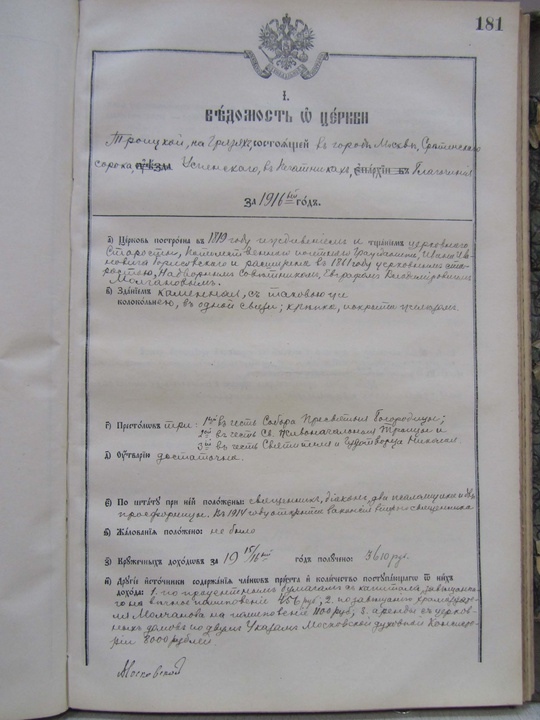 181
I.
Вѣдомость ѡ церкви
Троицкой, на Грязяхъ, состоящей въ городѣ Москвы, Срѣтенскаго
сорока, уѣзда Успенскаго, въ Печатникахъ, епархіи въ Благочинія
за 1916й годъ.
а) Церковь построена въ 1819 году иждивеніемъ и тщаніемъ церковнаго
Старосты,
и расширена въ 1861 году церковнымъ ста-
ростою, Надворнымъ Совѣтникомъ, Евграфомъ Владиміровичемъ
Молчановымъ.
в) Зданіемъ каменная, съ таковою же
колокольнею, въ одной связи; крѣпка, покрыта желѣзомъ.
г) Престоловъ три: 1й въ честь Собора Пресвятыя Богородицы;
2й въ честь Св. Живоначальныя Троицы и
3й въ честь Святителя и Чудотворца Николая
д) Оутварію достаточна.
є) По штату при ней положены: священникъ, діаконъ, два псаломщика и
просфорницы. Въ 1914 году открыта вакансія второго священника
ѕ) Жалованія положено: не было
з) Кружечныхъ доходовъ за 1915/16й годъ получено: 3610 руб.
и) Другіе источники содержанія членовъ причта и количество поступающаго ѿ нихъ
дохода: 1. по процентнымъ бумагамъ съ капитала, завѣщанна-
го на вѣчное поминовеніе 456 руб.; 2. по завѣщанію
Молчанова на поминовеніе 1100 руб.; 3. аренды съ церков-
ныхъ домовъ по двумъ Указамъ Московской духовной Консисто-
ріи 8000 рублей.
Московской